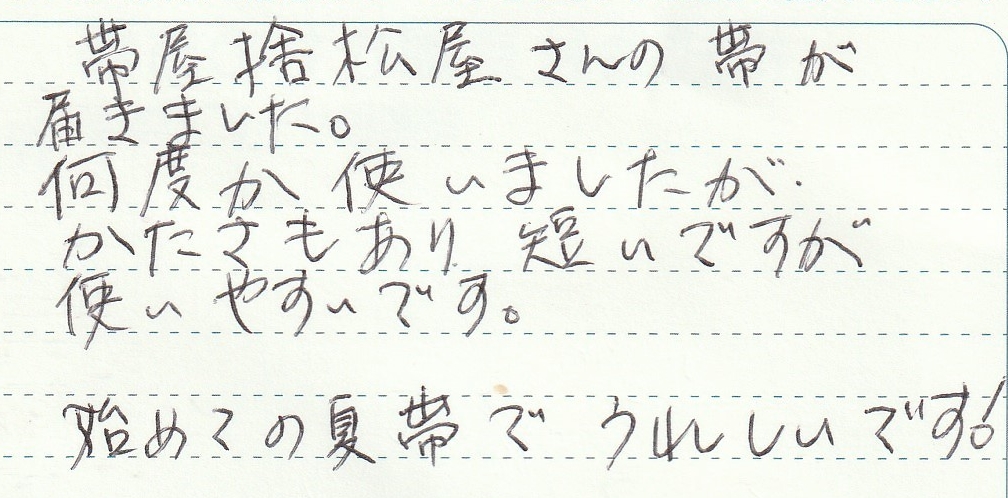 帯屋捨松屋さんの帯が
届きました。
何度か使いましたが
かたさもあり短いですが
使いやすいです。
始めての夏帯でうれしいです!